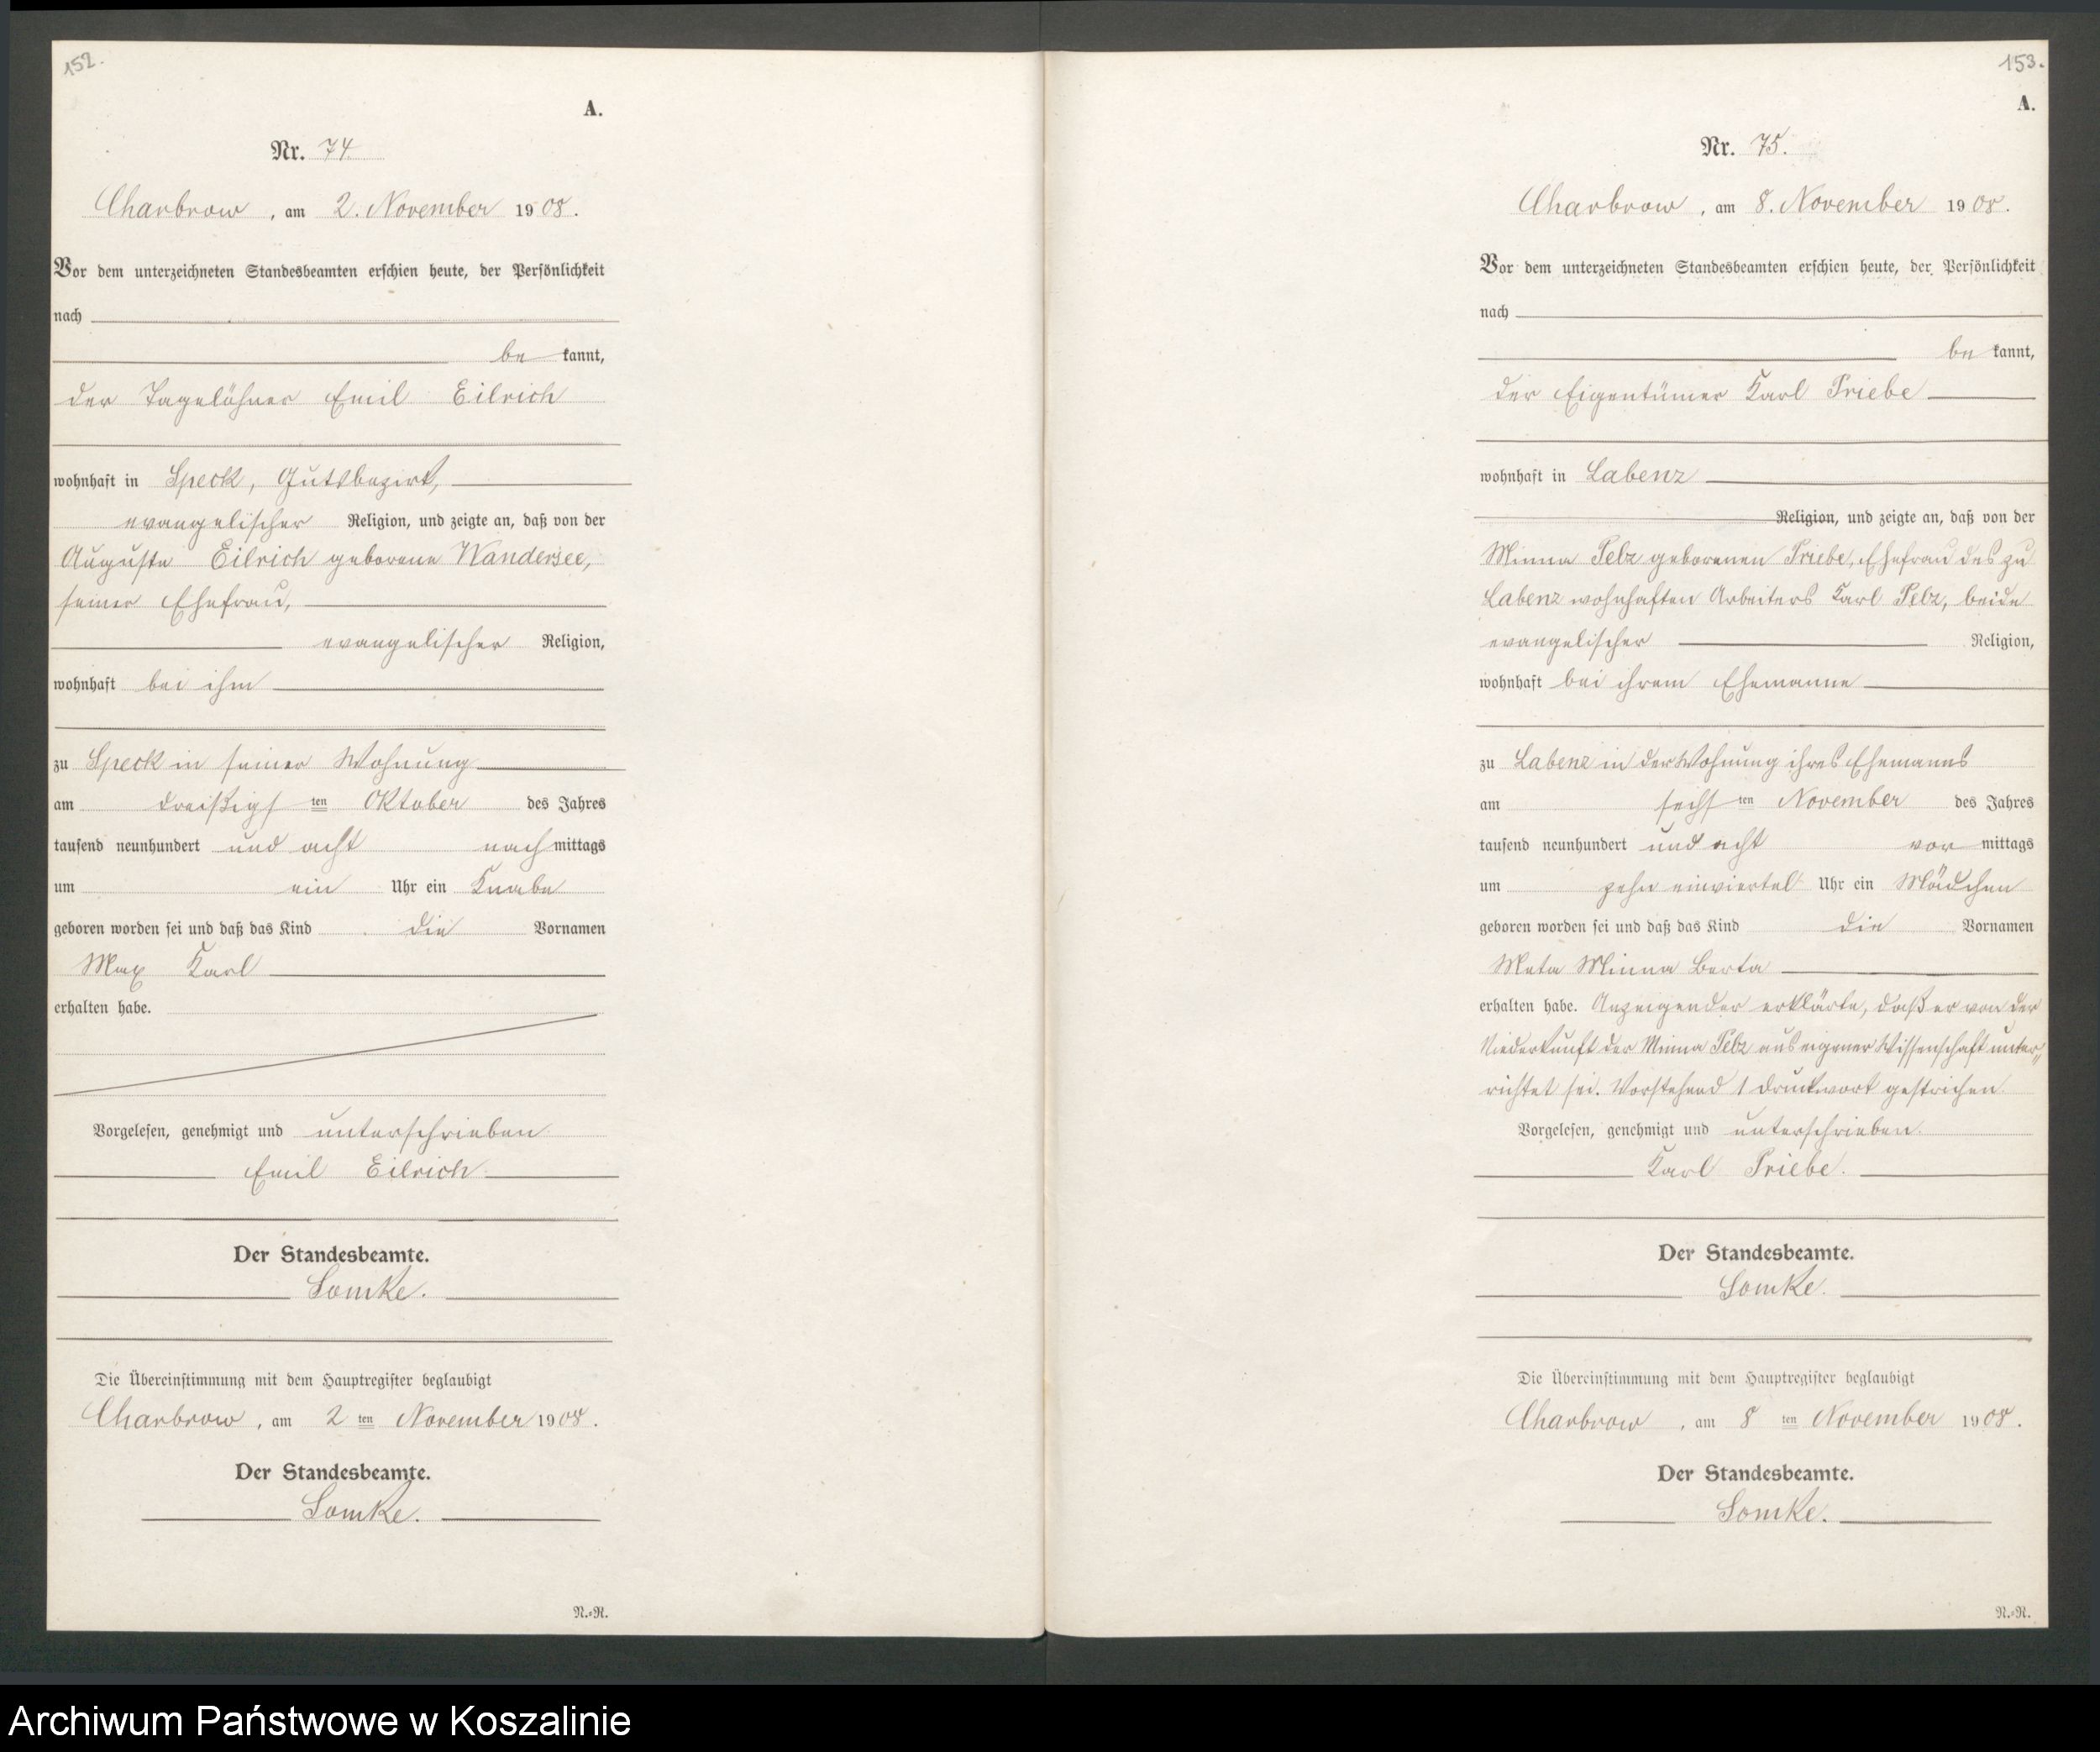 152.
A.
Nr. 74
Charbrow, am 2. November 1908.
Vor dem unterzeichneten Standesbeamten erschien heute, der Persönlichkeit
nach
be kannt,
der Tagelöhner Emil Eilrich
wohnhaft in Speck, Gutsbezirk,
evangelischer Religion, und zeigte an, daß von der
Auguste Eilrich geborene Wandersee,
seiner Ehefrau,
evangelischer Religion,
wohnhaft bei ihm
zu Speck in seiner Wohnung
am dreißigs ten Oktober des Jahres
tausend neunhundert und acht nach mittags
um ein Uhr ein Knabe
geboren worden sei und daß das Kind die Vornamen
Max Karl
erhalten habe.
Vorgelesen, genehmigt und unterschrieben
Emil Eilrich
Der Standesbeamte.
Somke.
Die Übereinstimmung mit dem Hauptregister beglaubigt
Charbrow, am 2 ten November 1908.
Der Standesbeamte.
Somke.
N.=N.
153.
A.
Nr. 75.
Charbrow, am 8. November 1908.
Vor dem unterzeichneten Standesbeamten erschien heute, der Persönlichkeit
nach
be kannt,
der Eigentümer Karl Priebe
wohnhaft in Labenz
Religion, und zeigte an, daß von der
Minna Pelz geborenen Priebe, Ehefrau des zu
Labenz wohnhaften Arbeiters Karl Pelz, beide
evangelischer Religion,
wohnhaft bei ihrem Ehemanne
zu Labenz in der Wohnung ihres Ehemanns
am sechs ten November des Jahres
tausend neunhundert und acht vor mittags
um zehn einviertel Uhr ein Mädchen
geboren worden sei und daß das Kind die Vornamen
Meta Minna Berta
erhalten habe. Anzeigender erklärte, daß er von der
Niederkunft der Minna Pelz aus eigener Wissenschaft unter„
richtet sei. Vorstehend 1 Druckwort gestrichen
Vorgelesen, genehmigt und unterschrieben.
Karl Priebe.
Der Standesbeamte.
Somke.
Die Übereinstimmung mit dem Hauptregister beglaubigt
Charbrow, am 8 ten November 1908.
Der Standesbeamte.
Somke.
N.=N.
Archiwum Państwowe w Koszalinie